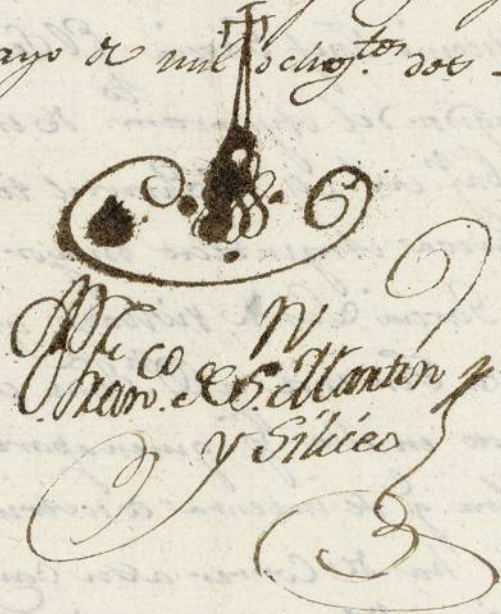 ayo de mil ochoz.tos dos
Fran.co de S. Martin
y Siliceo